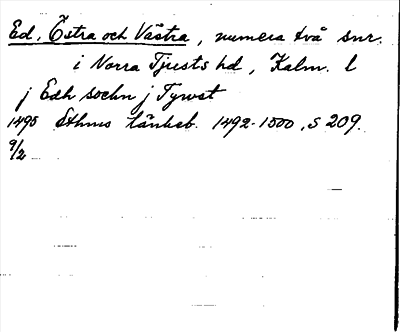 Ed, Östra och Västra, numera två snr.
i Norra Tjusts hd, Kalm. l
j Edh sochn j Tywst
1495 Sthms tänkeb. 1492-1500, S 209.
9/2